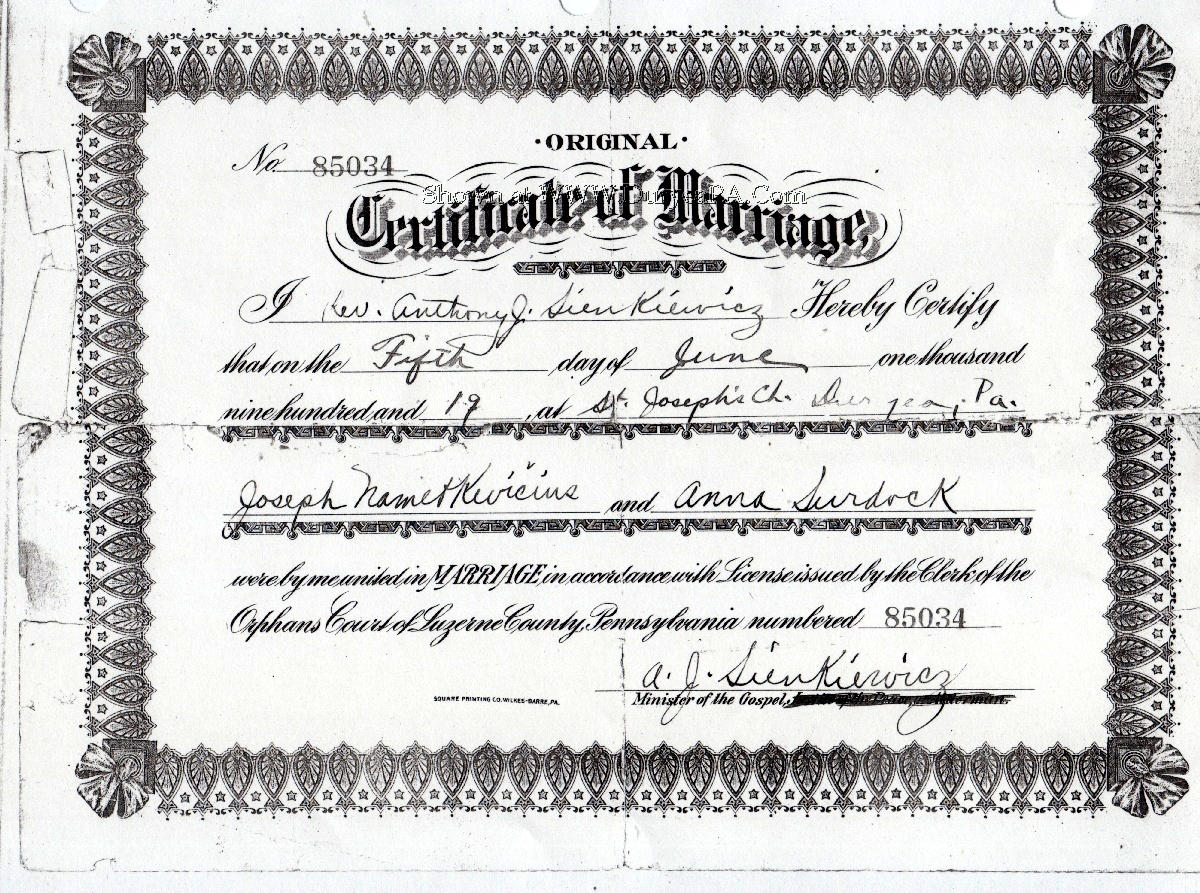 · ORIGINAL ·
No. 85034
Shown at WWW.DuryeaPA.Com
Certificate of Marriage,
I Rev. Anthony J. Sienkiewicz Hereby Certify
that on the Fifth day of June one thousand
nine hundred and 19, at St. Joseph's Ch. Duryea, Pa.
Joseph Nametkevičius and Anna Surdock
were by me united in MARRIAGE, in accordance with License issued by the Clerk of the
Orphans Court of Luzerne County, Pennsylvania numbered 85034
A. J. Sienkiewicz
SQUARE PRINTING CO. WILKES-BARRE, PA.
Minister of the Gospel,